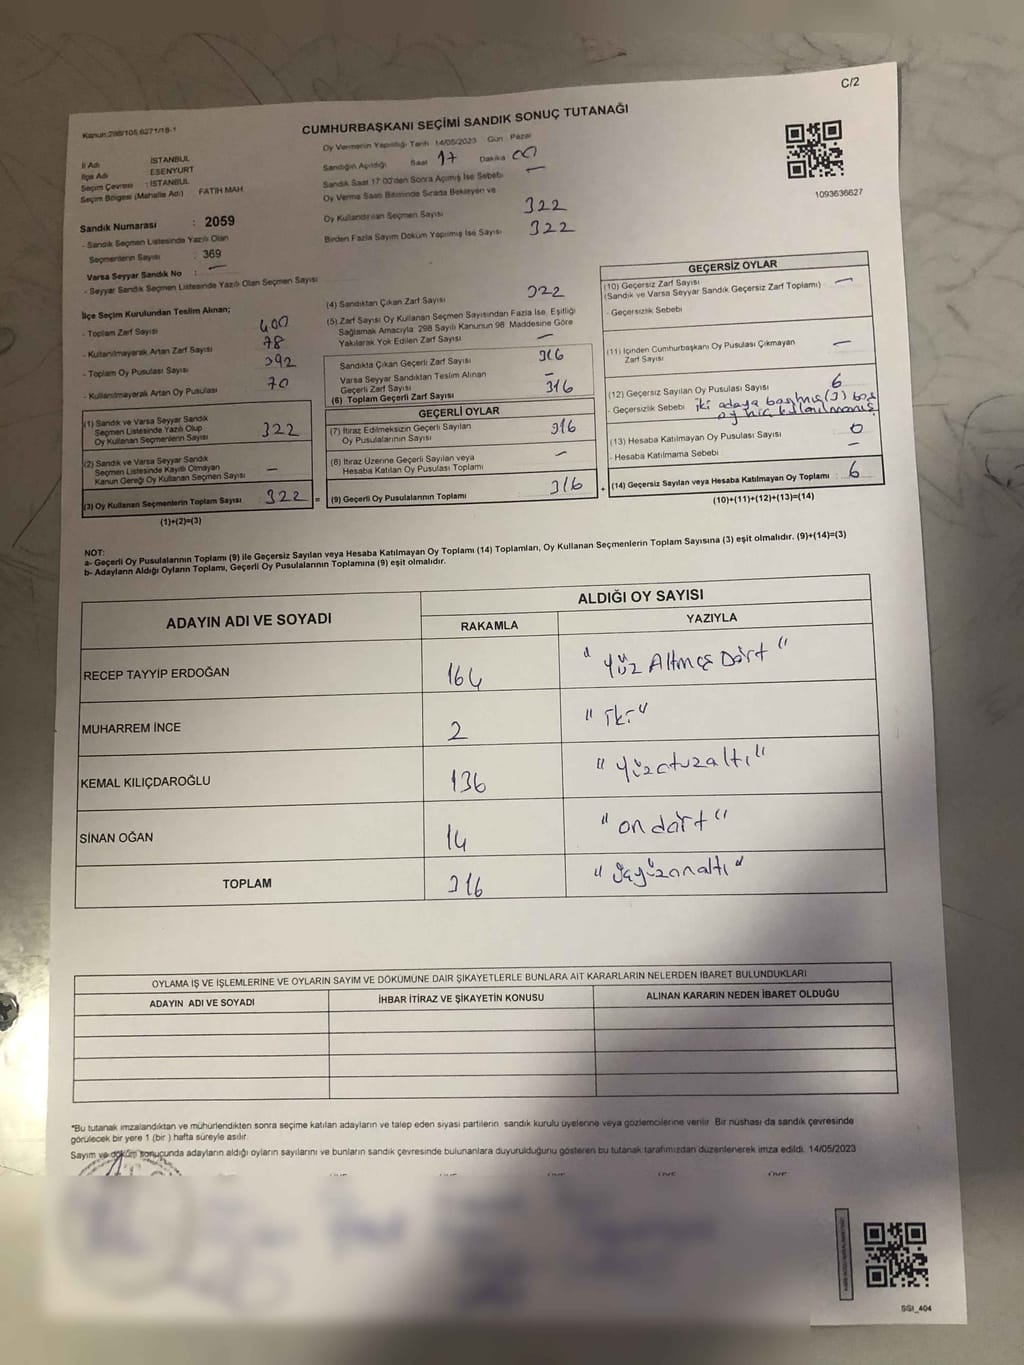 C/2
Kanun:298/105,6271/19-1
CUMHURBAŞKANI SEÇİMİ SANDIK SONUÇ TUTANAĞI
İl Adı : İSTANBUL
İlçe Adı : ESENYURT
Seçim Çevresi : İSTANBUL
Seçim Bölgesi (Mahalle Adı) FATİH MAH
Sandık Numarası : 2059
- Sandık Seçmen Listesinde Yazılı Olan
Seçmenlerin Sayısı : 369
Varsa Seyyar Sandık No : —
- Seyyar Sandık Seçmen Listesinde Yazılı Olan Seçmen Sayısı
Oy Vermenin Yapıldığı Tarih 14/05/2023 Gün Pazar
Sandığın Açıldığı Saat 17 Dakika 00
Sandık Saat 17:00'den Sonra Açılmış İse Sebebi —
Oy Verme Saati Bitiminde Sırada Bekleyen ve
Oy Kullandırılan Seçmen Sayısı 322
Birden Fazla Sayım Döküm Yapılmış İse Sayısı 322
1093636627
İlçe Seçim Kurulundan Teslim Alınan;
- Toplam Zarf Sayısı 400
- Kullanılmayarak Artan Zarf Sayısı 78
- Toplam Oy Pusulası Sayısı 392
- Kullanılmayarak Artan Oy Pusulası 70
(1) Sandık ve Varsa Seyyar Sandık
Seçmen Listesinde Yazılı Olup
Oy Kullanan Seçmenlerin Sayısı 322
(2) Sandık ve Varsa Seyyar Sandık
Seçmen Listesinde Kayıtlı Olmayan
Kanun Gereği Oy Kullanan Seçmen Sayısı —
(3) Oy Kullanan Seçmenlerin Toplam Sayısı 322 =
(1)+(2)=(3)
(4) Sandıktan Çıkan Zarf Sayısı 322
(5) Zarf Sayısı Oy Kullanan Seçmen Sayısından Fazla İse, Eşitliği
Sağlamak Amacıyla 298 Sayılı Kanunun 98. Maddesine Göre
Yakılarak Yok Edilen Zarf Sayısı —
Sandıkta Çıkan Geçerli Zarf Sayısı 316
Varsa Seyyar Sandıktan Teslim Alınan
Geçerli Zarf Sayısı —
(6) Toplam Geçerli Zarf Sayısı 316
GEÇERLİ OYLAR
(7) İtiraz Edilmeksizin Geçerli Sayılan
Oy Pusulalarının Sayısı 316
(8) İtiraz Üzerine Geçerli Sayılan veya
Hesaba Katılan Oy Pusulası Toplamı —
(9) Geçerli Oy Pusulalarının Toplamı 316 +
GEÇERSİZ OYLAR
(10) Geçersiz Zarf Sayısı
(Sandık ve Varsa Seyyar Sandık Geçersiz Zarf Toplamı) —
- Geçersizlik Sebebi
(11) İçinden Cumhurbaşkanı Oy Pusulası Çıkmayan
Zarf Sayısı —
(12) Geçersiz Sayılan Oy Pusulası Sayısı 6
- Geçersizlik Sebebi iki adaya basılmış (3) boş
oy hiç kullanılmamış
(13) Hesaba Katılmayan Oy Pusulası Sayısı 0
- Hesaba Katılmama Sebebi —
(14) Geçersiz Sayılan veya Hesaba Katılmayan Oy Toplamı : 6
(10)+(11)+(12)+(13)=(14)
NOT:
a- Geçerli Oy Pusulalarının Toplamı (9) ile Geçersiz Sayılan veya Hesaba Katılmayan Oy Toplamı (14) Toplamları, Oy Kullanan Seçmenlerin Toplam Sayısına (3) eşit olmalıdır. (9)+(14)=(3)
b- Adayların Aldığı Oyların Toplamı, Geçerli Oy Pusulalarının Toplamına (9) eşit olmalıdır.
ADAYIN ADI VE SOYADI
ALDIĞI OY SAYISI
RAKAMLA YAZIYLA
RECEP TAYYİP ERDOĞAN 164 "Yüz Altmış Dört"
MUHARREM İNCE 2 "iki"
KEMAL KILIÇDAROĞLU 136 "Yüzotuzaltı"
SİNAN OĞAN 14 "on dört"
TOPLAM 316 "üçyüzonaltı"
OYLAMA İŞ VE İŞLEMLERİNE VE OYLARIN SAYIM VE DÖKÜMÜNE DAİR ŞİKAYETLERLE BUNLARA AİT KARARLARIN NELERDEN İBARET BULUNDUKLARI
ADAYIN ADI VE SOYADI İHBAR İTİRAZ VE ŞİKAYETİN KONUSU ALINAN KARARIN NEDEN İBARET OLDUĞU
*Bu tutanak imzalandıktan ve mühürlendikten sonra seçime katılan adayların ve talep eden siyasi partilerin sandık kurulu üyelerine veya gözlemcilerine verilir. Bir nüshası da sandık çevresinde
görülecek bir yere 1 (bir ) hafta süreyle asılır.
Sayım ve döküm sonucunda adayların aldığı oyların sayılarını ve bunların sandık çevresinde bulunanlara duyurulduğunu gösteren bu tutanak tarafımızdan düzenlenerek imza edildi. 14/05/2023
SSI_404